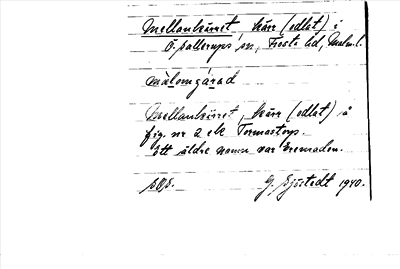 Mellankärret, kärr (odlat) i
Ö. Sallerups sn, Frosta hd, Malm. l.
mälomgárad
Mellankärret, kärr (odlat) å
fig. nr 2 ek Tormastorp.
Ett äldre namn var Svemaden.
sös.
G. Sjöstedt 1940.